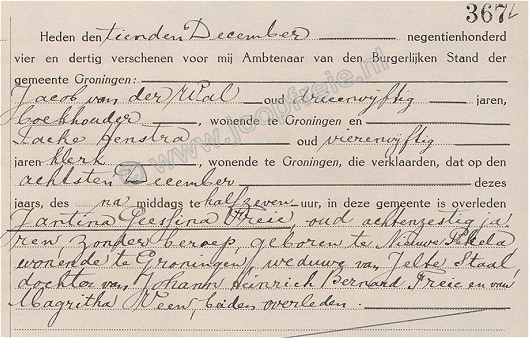 367
Heden den tienden December negentienhonderd
vier en dertig verschenen voor mij Ambtenaar van den Burgerlijken Stand der
gemeente Groningen:
Jacob van der Wal oud drieenvijftig jaren,
boekhouder, wonende te Groningen en
Taeke Henstra oud vierenvijftig
jaren klerk, wonende te Groningen, die verklaarden, dat op den
achtsten December dezes
jaars, des na middags te half zeven uur, in deze gemeente is overleden
Jantina Geessina Freie, oud achtenzestig ja
ren, zonder beroep, geboren te Nieuwe Pekela
wonende te Groningen, weduwe van Jelte Staal,
dochter van Johann Heinrich Bernard Freie en van
Magritha Veen, beiden overleden.
www.jcopfreie.nl